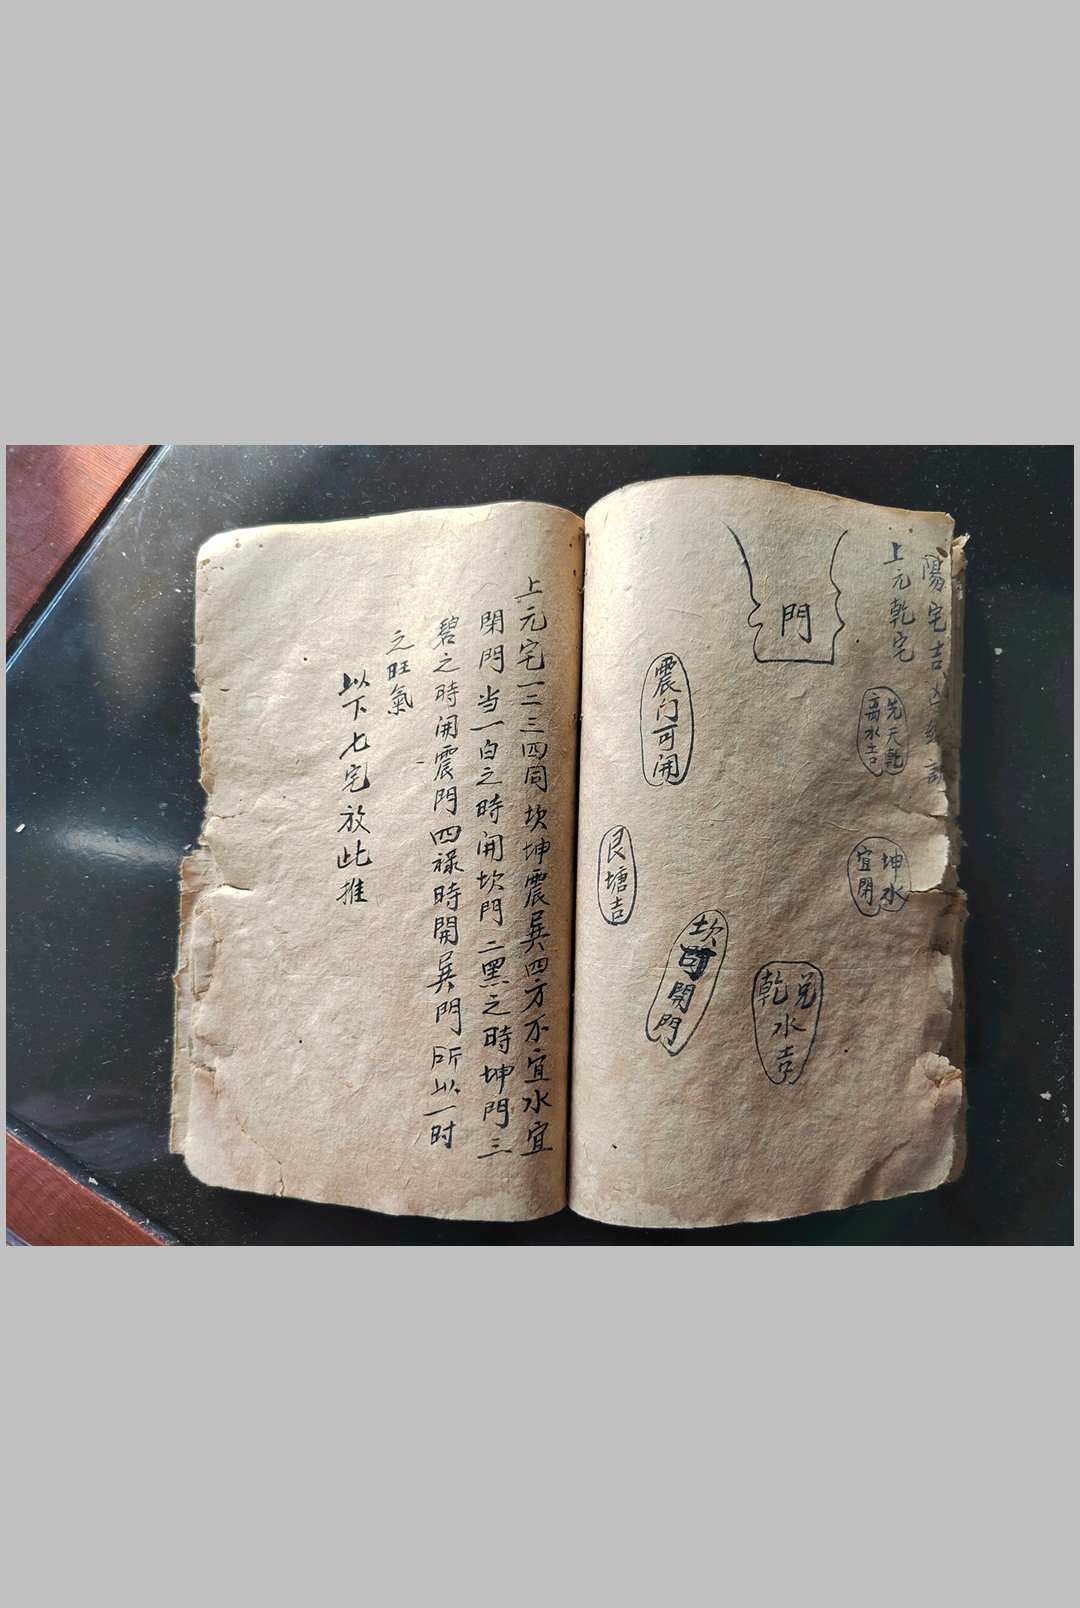 陽宅吉凶
上元乾宅
先天乾
离水吉
坤水
宜閉
門
兑
乾水吉
震门可開
坎時開門
艮塘吉
上元宅一二三四同坎坤震巽四方不宜水宜
閉門当一白之時開坎門二黑之時坤門三
碧之時開震門四禄時開巽門所以一时
之旺氣
以下七宅放此推